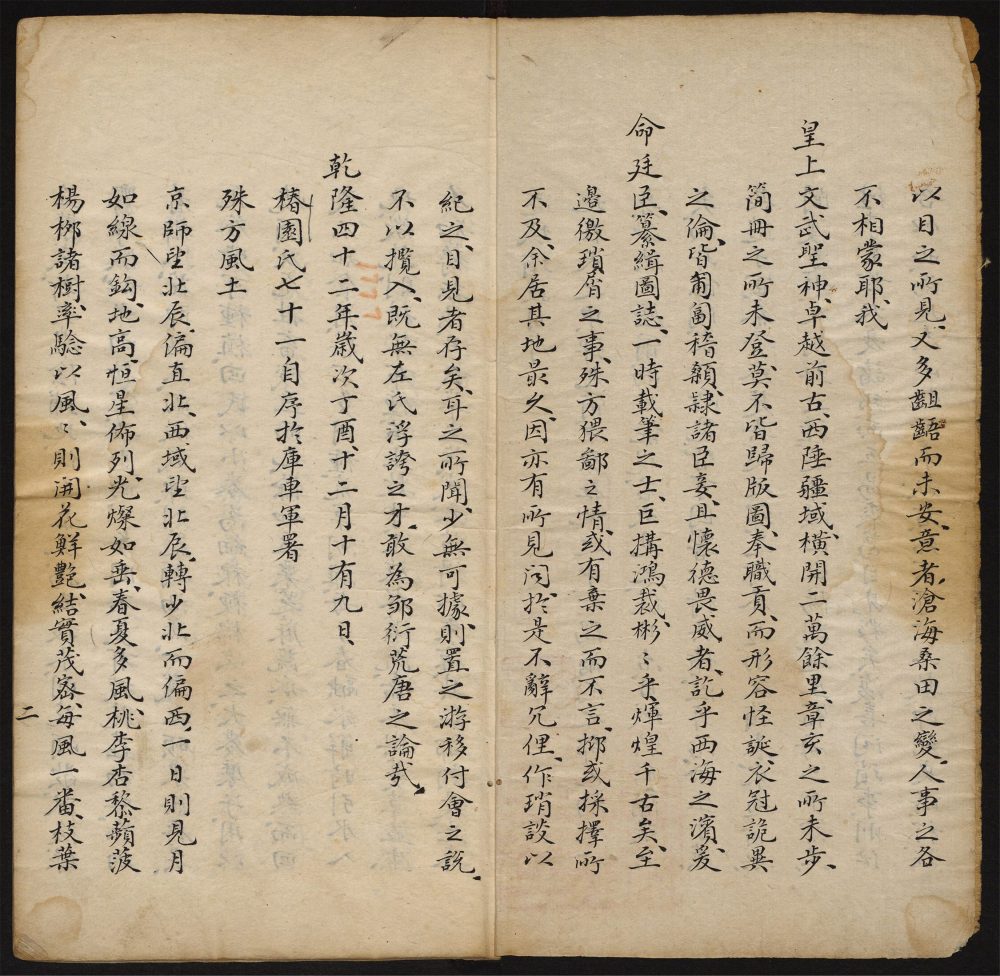 以目之所見、又多齟齬而未安、意者、滄海桑田之變、人事之各
不相蒙耶、我
皇上文武聖神、卓越前古、西陲疆域、橫開二萬餘里、章亥之所未步、
簡冊之所未登、莫不皆歸版圖、奉職貢、而形容怪誕、衣冠詭異
之倫、皆匍匐稽顙、隸諸臣妾、且懷德畏威者、訖乎西海之濱、爰
命廷臣、纂緝圖誌、一時載筆之士、巨搆鴻裁、彬〻乎煇煌千古矣、至
邊徼瑣屑之事、殊方猥鄙之情、或有棄之而不言、抑或採擇所
不及、余居其地最久、因亦有所見聞、於是不辭冗俚、作瑣談以
紀之、目見者存矣、耳之所聞、少無可據、則置之、游移付會之說、
不以攬入、既無左氏浮誇之才、敢為邹衍荒唐之論哉、
乾隆四十二年、歲次丁酉、十二月十有九日、
椿園氏七十一自序於庫車軍署
殊方風土
京師望北辰、偏直北、西域望北辰、轉少北而偏西、一日則見月
如線而鈎、地高、恒星佈列、光燦如垂、春夏多風、桃李杏棃蘋菠
楊栁諸樹、率驗以風、〻則開花鮮艷、結實茂密、每風一番、枝葉
二